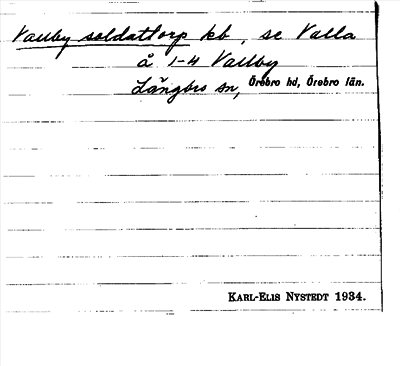 Vallby soldattorp kb, se Valla
å 1-4 Vallby
Längbro sn, Örebro hd, Örebro län.
KARL-ELIS NYSTEDT 1934.